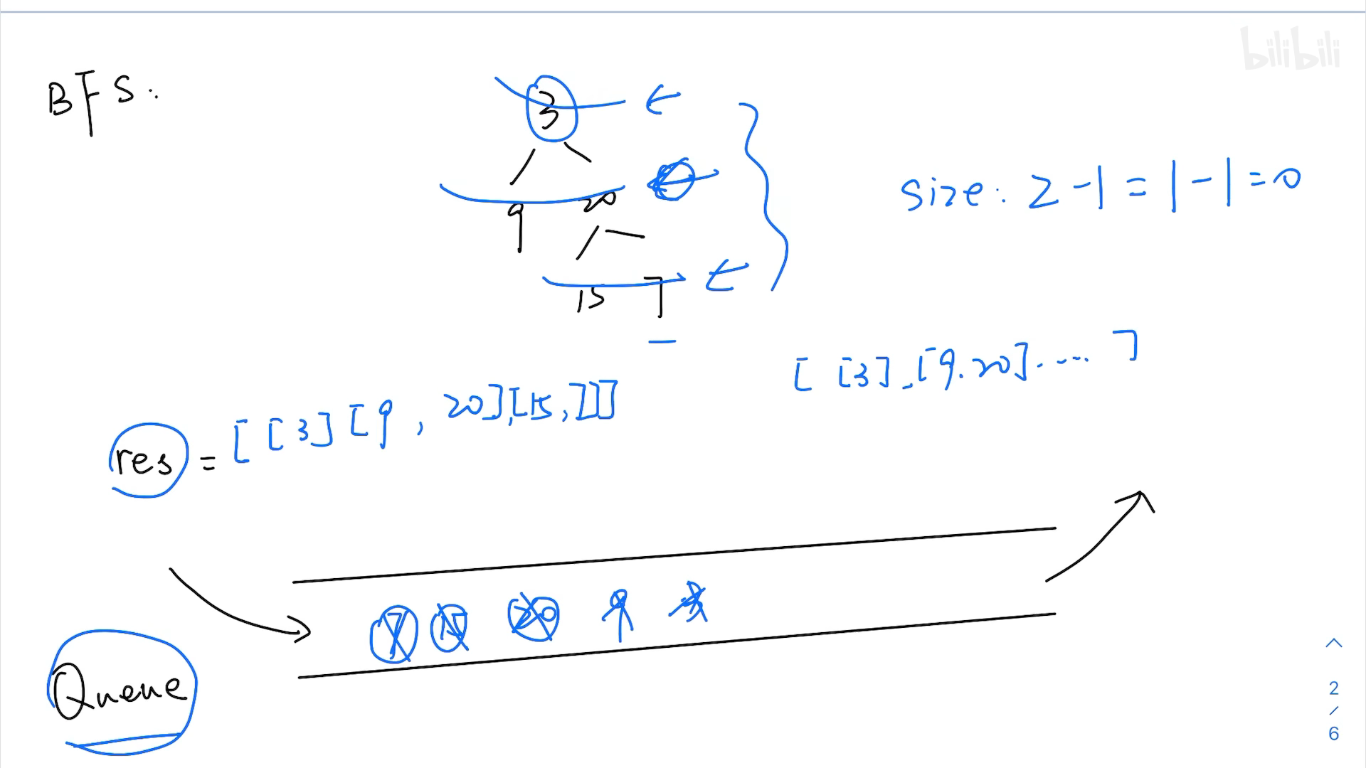 bilibili
BFS:
3
9 20
15 7
size: 2-1=1-1=0
[ [3], [9.20].... ]
res = [ [3] [9, 20],[15,7]]
7 15 20 9 3
Queue
2
/
6